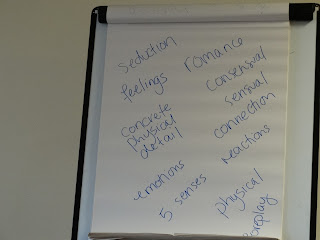 seduction
romance
feelings
consensual
sensual
concrete
physical
detail
connection
reactions
emotions
5 senses
physical
foreplay